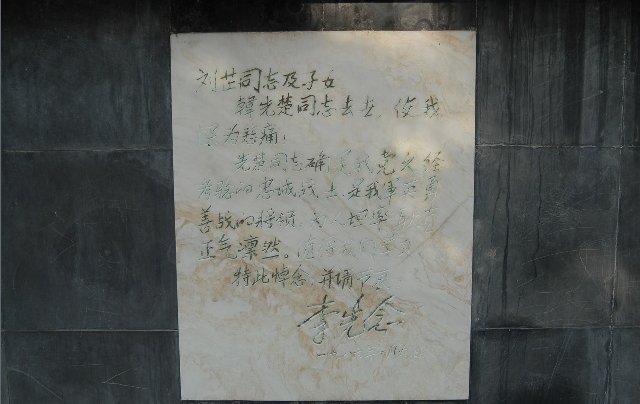 刘芷同志及子女
韩先楚同志去世，使我
深为悲痛；
先楚同志确是我党久经
考验的忠诚战士，是我军英勇
善战的将领，为人坦率
正气凛然。
特此悼念，并请节哀
李先念
一九八六年